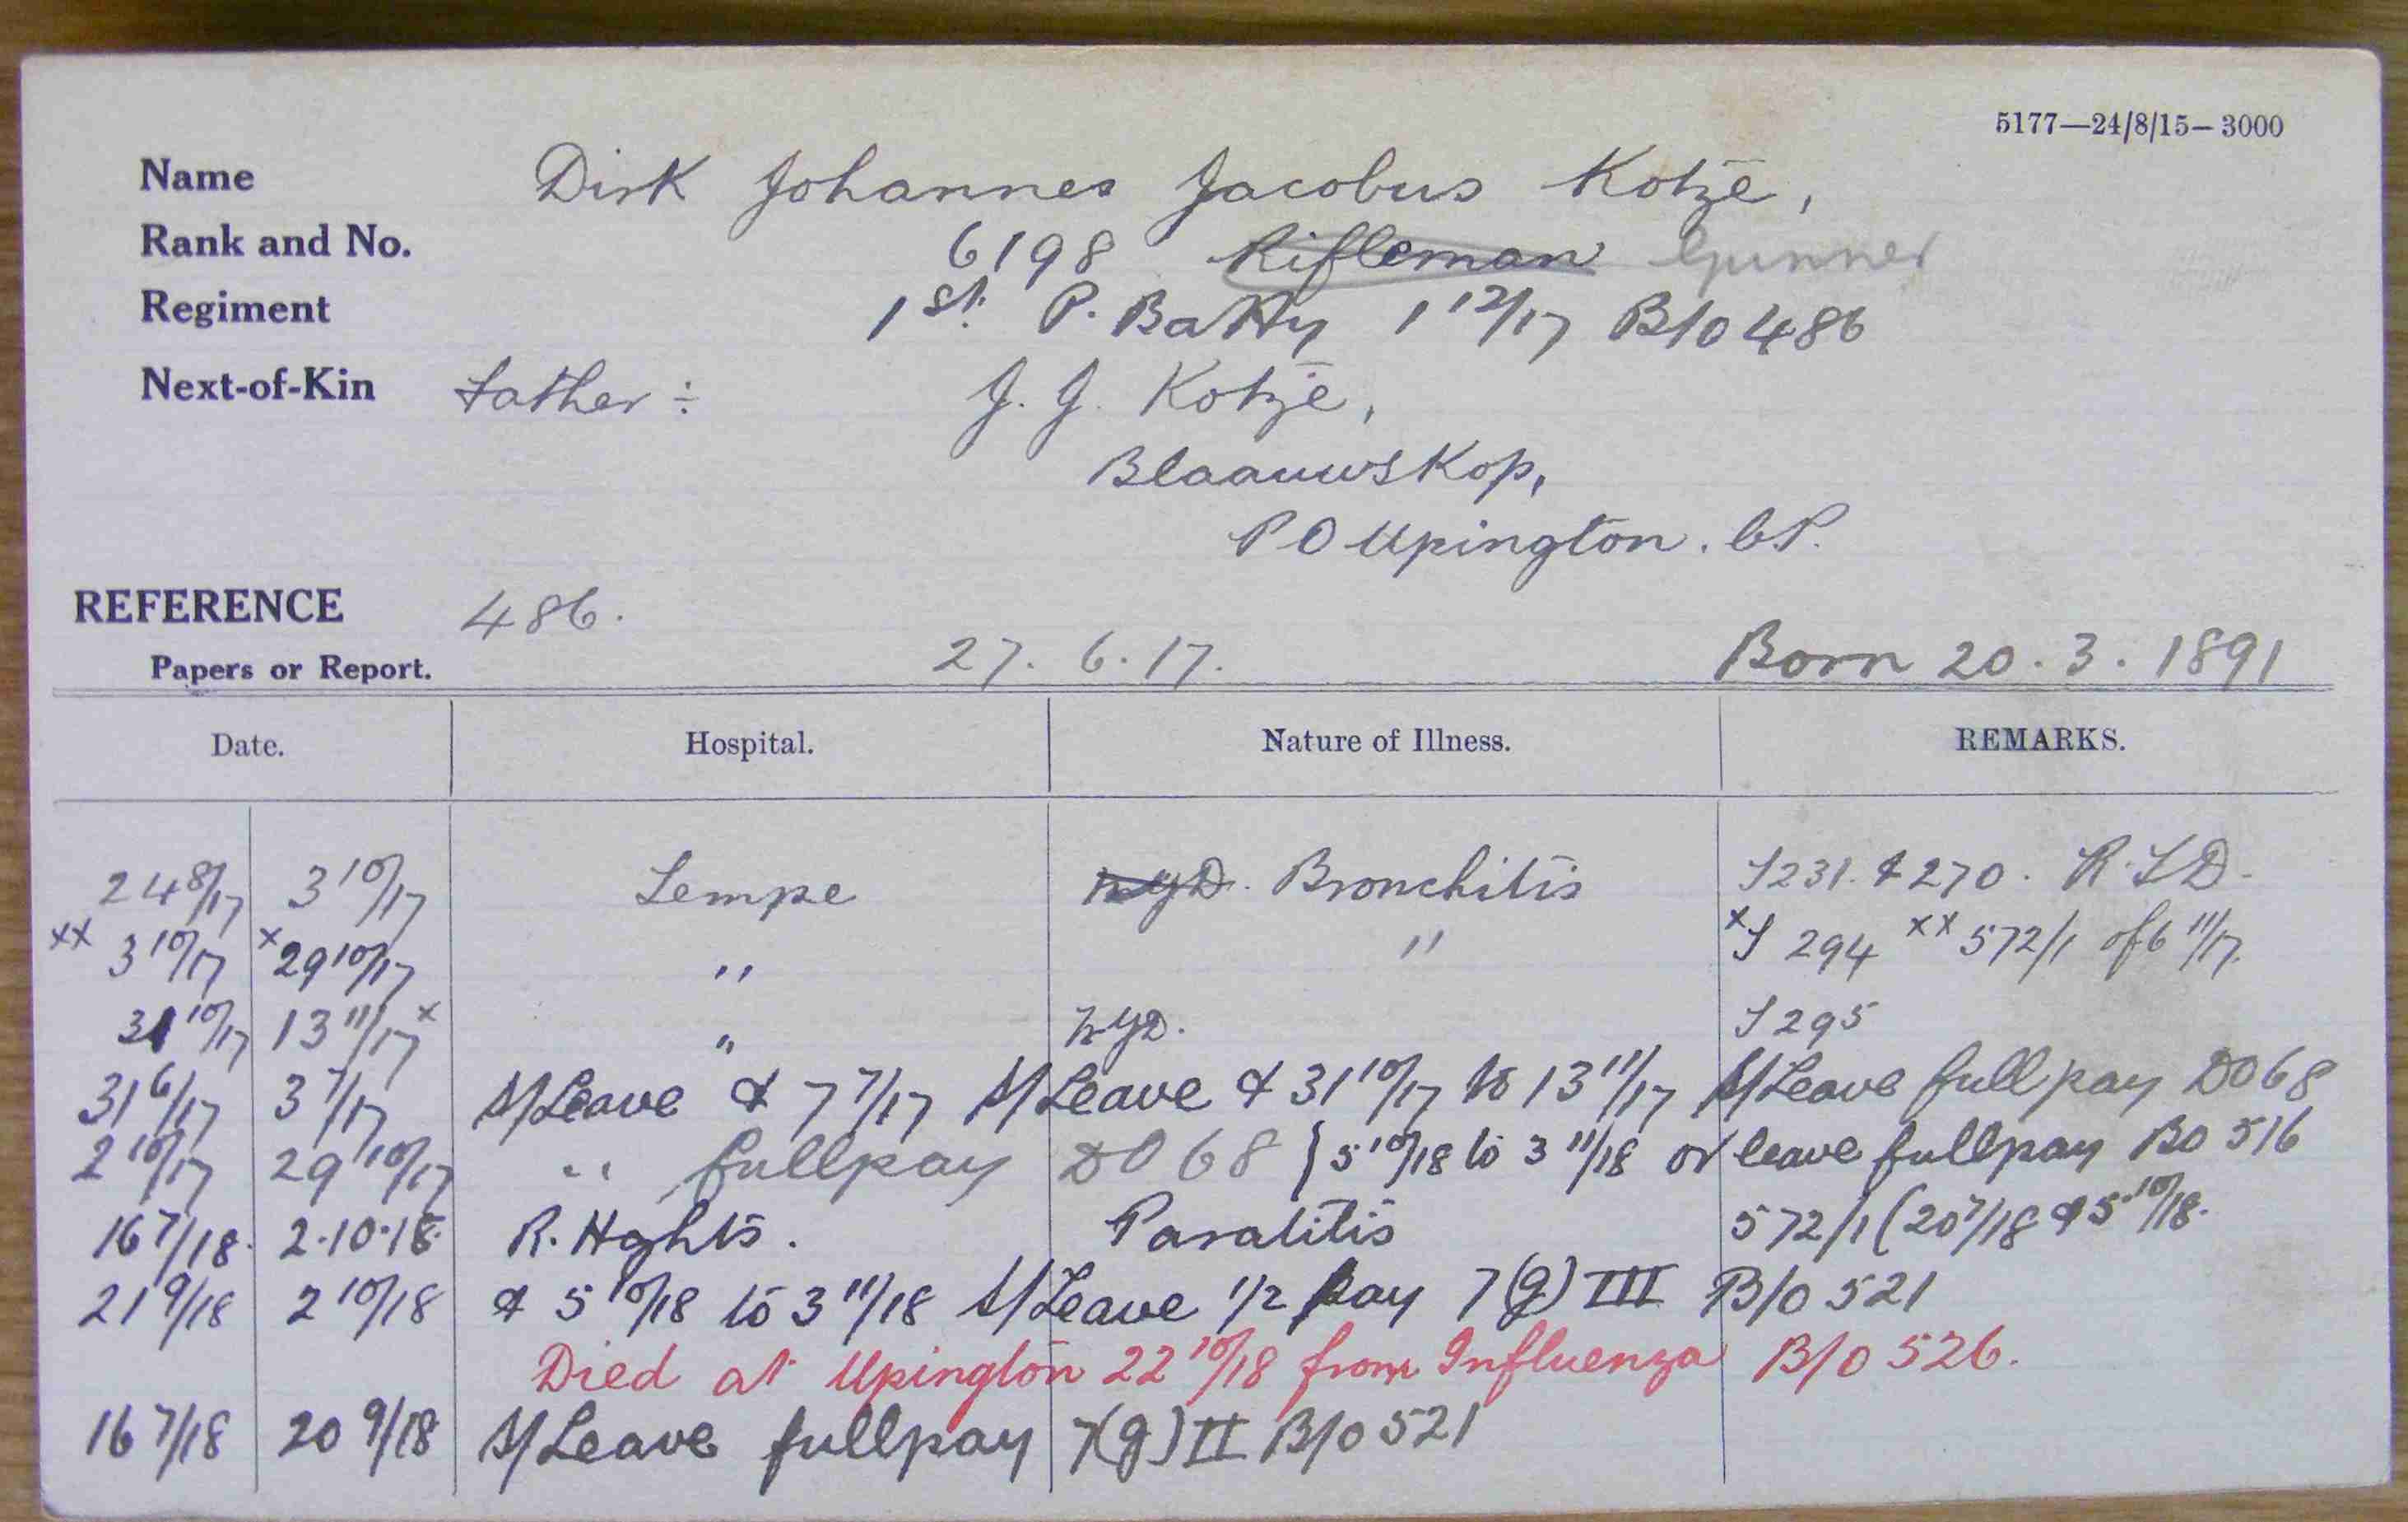 5177—24/8/15—3000
Name Dirk Johannes Jacobus Kotze,
Rank and No. 6198 Rifleman Gunner
Regiment 1st P. Batty 1 12/17 B/O 486
Next-of-Kin father ÷ J. J. Kotze,
Blaauwskop,
P O Upington. C.P.
REFERENCE 486.
Papers or Report. 27. 6. 17. Born 20. 3. 1891
Date. Hospital. Nature of Illness. REMARKS.
24 8/17 3 10/17 Tempe NYD. Bronchitis S231. & 270. R.S.D.
xx 3 10/17 x 29 10/17 " " x S 294 xx 572/1 of 6 11/17.
31 10/17 13 11/17 x " NYD. S 295
31 6/17 3 7/17 S/Leave & 7 7/17 S/Leave & 31 10/17 to 13 11/17 S/Leave full pay DO 68
2 10/17 29 10/17 " fullpay DO 68 { 5 10/18 to 3 11/18 or leave fullpay BO 516
16 7/18. 2.10.18. R. Hghts. Paratitis 572/1 (20 7/18 & 5.10/18.
21 9/18 2 10/18 & 5 10/18 to 3 11/18 S/Leave 1/2 Pay 7(g) III B/O 521
Died at Upington 22 10/18 from Influenza B/O 526.
16 7/18 20 9/18 S/Leave fullpay 7(g) II B/O 521